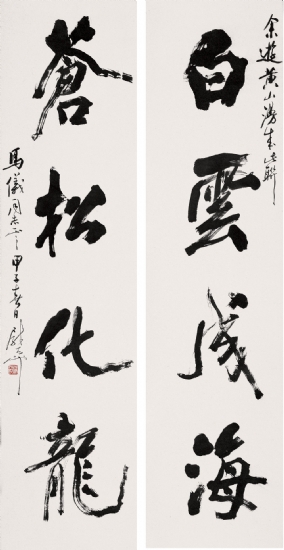 余遊黄山成此聯
白雲成海
蒼松化龍
馬儀同志正之甲子春日